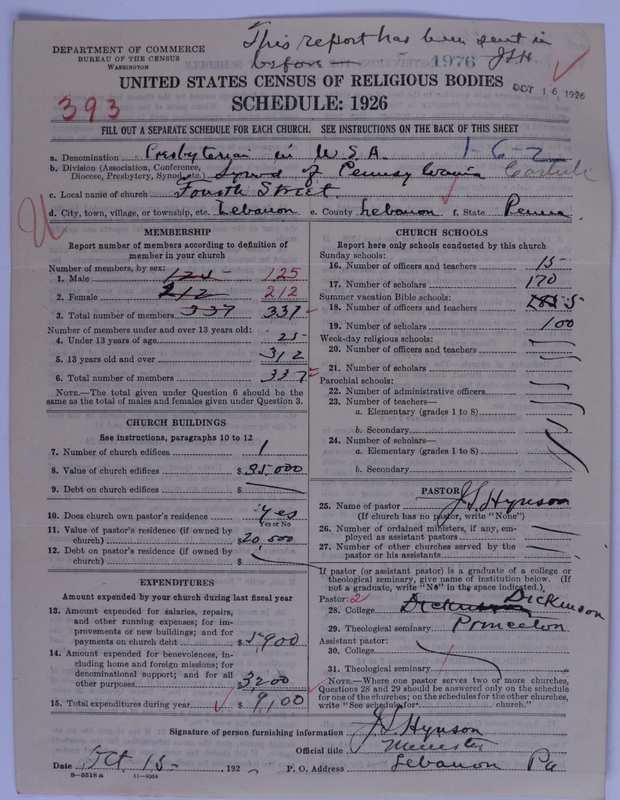 This report has been sent in
before — 1976 JSH
DEPARTMENT OF COMMERCE
BUREAU OF THE CENSUS
WASHINGTON
UNITED STATES CENSUS OF RELIGIOUS BODIES
OCT 16 1926
393
SCHEDULE: 1926
FILL OUT A SEPARATE SCHEDULE FOR EACH CHURCH. SEE INSTRUCTIONS ON THE BACK OF THIS SHEET
a. Denomination Presbyterian in U.S.A. 1-6-2
b. Division (Association, Conference, Diocese, Presbytery, Synod, etc.) Synod of Pennsylvania Carlisle
c. Local name of church Fourth Street
d. City, town, village, or township, etc. Lebanon e. County Lebanon f. State Penna.
MEMBERSHIP
Report number of members according to definition of
member in your church
Number of members, by sex:
1. Male 125 125
2. Female 212 212
3. Total number of members 337 337
Number of members under and over 13 years old:
4. Under 13 years of age 25
5. 13 years old and over 312
6. Total number of members 337
NOTE.—The total given under Question 6 should be the
same as the total of males and females given under Question 3.
CHURCH BUILDINGS
See instructions, paragraphs 10 to 12
7. Number of church edifices 1
8. Value of church edifices $ 35,000
9. Debt on church edifices $
10. Does church own pastor's residence Yes
Yes or No
11. Value of pastor's residence (if owned by
church) $ 20,000
12. Debt on pastor's residence (if owned by
church) $
EXPENDITURES
Amount expended by your church during last fiscal year
13. Amount expended for salaries, repairs,
and other running expenses; for im-
provements or new buildings; and for
payments on church debt $ 5,900
14. Amount expended for benevolences, in-
cluding home and foreign missions; for
denominational support; and for all
other purposes $ 3200
15. Total expenditures during year $ 9,100
CHURCH SCHOOLS
Report here only schools conducted by this church
Sunday schools:
16. Number of officers and teachers 15
17. Number of scholars 170
Summer vacation Bible schools:
18. Number of officers and teachers 5
19. Number of scholars 100
Week-day religious schools:
20. Number of officers and teachers
21. Number of scholars
Parochial schools:
22. Number of administrative officers
23. Number of teachers—
a. Elementary (grades 1 to 8)
b. Secondary
24. Number of scholars—
a. Elementary (grades 1 to 8)
b. Secondary
PASTOR
25. Name of pastor J.S. Hynson
(If church has no pastor, write "None")
26. Number of ordained ministers, if any, em-
ployed as assistant pastors
27. Number of other churches served by the
pastor or his assistants
If pastor (or assistant pastor) is a graduate of a college or
theological seminary, give name of institution below. (If
not a graduate, write "No" in the space indicated.)
Pastor: 2
28. College Dickinson Dickinson
29. Theological seminary Princeton
Assistant pastor:
30. College
31. Theological seminary
NOTE.—Where one pastor serves two or more churches,
Questions 28 and 29 should be answered only on the schedule
for one of the churches; on the schedules for the other churches,
write "See schedule for church."
Signature of person furnishing information J.S. Hynson
Official title Minister
Date Oct 15 192 P. O. Address Lebanon Pa
8-5518 a 11-9354